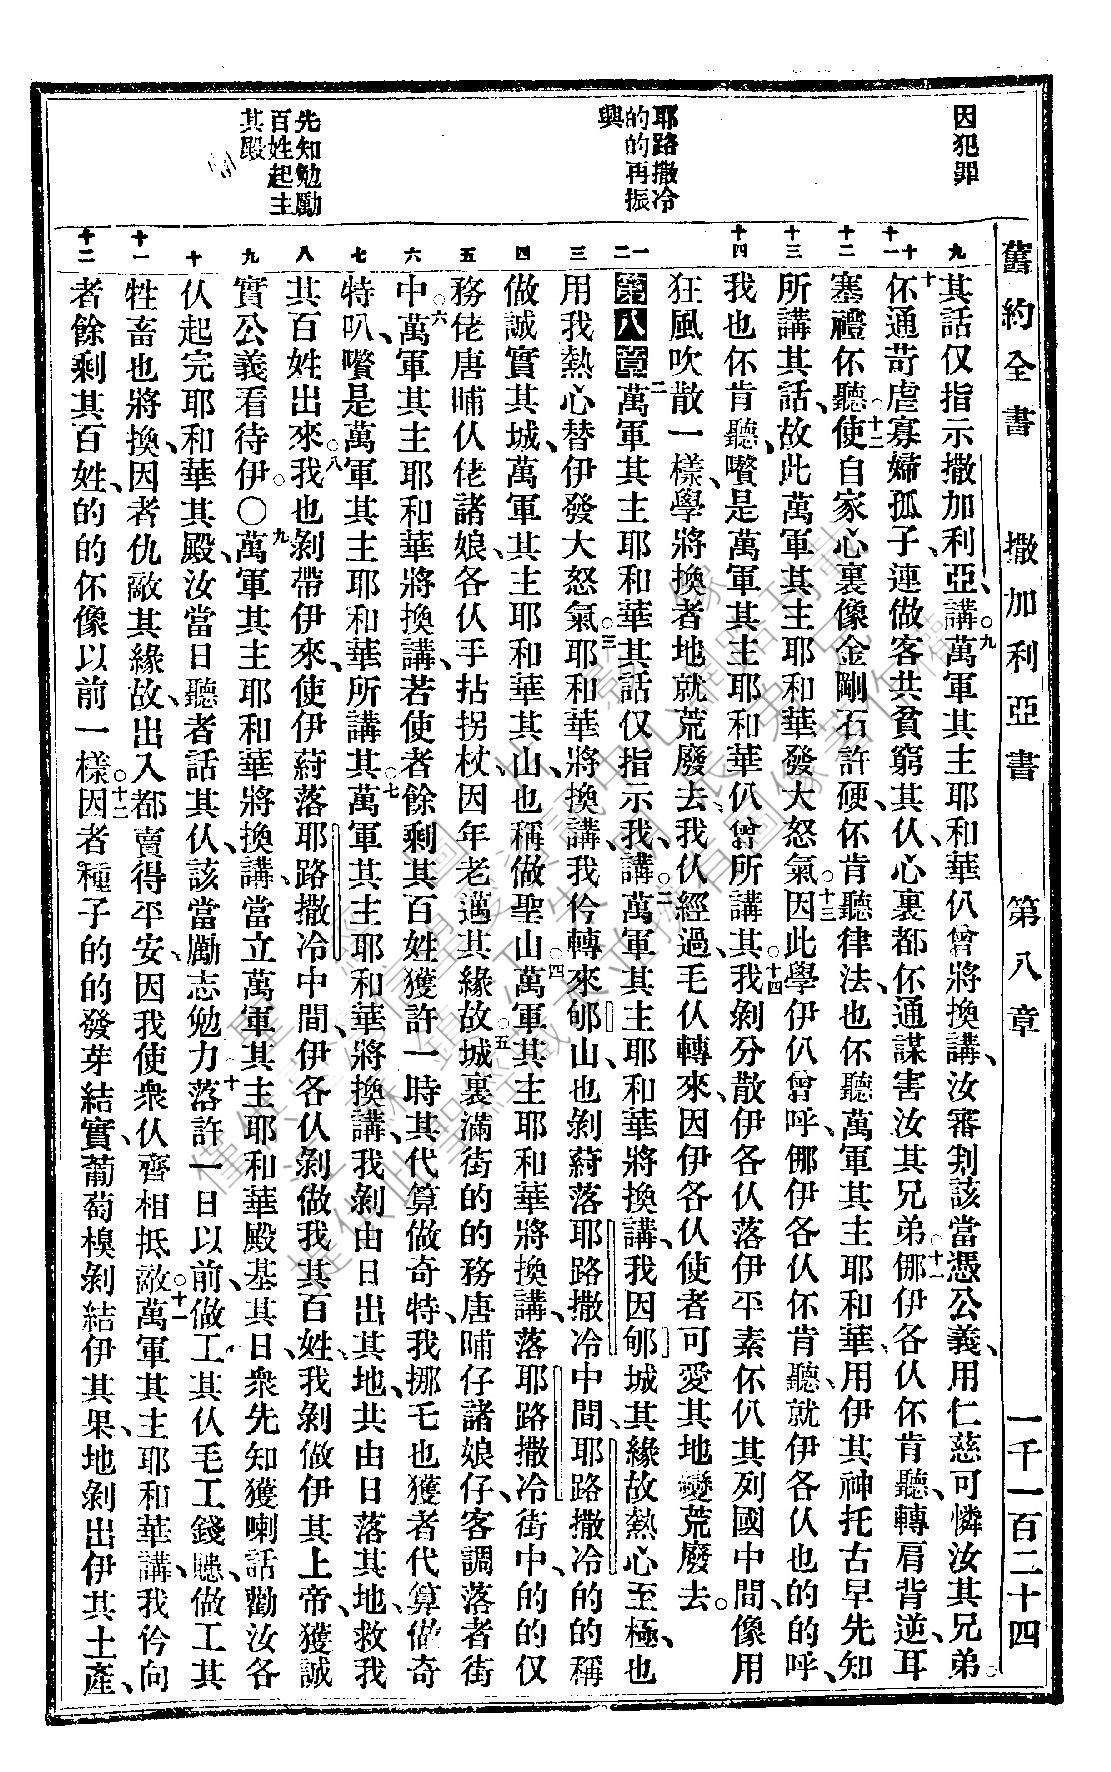 舊約全書 撒加利亞書 第八章 一千一百二十四
因犯罪
耶路撒冷
的的再振
興
先知勉勵
百姓起主
其殿
九 其話仅指示撒加利亞、講萬軍其主耶和華仈曾將換講、汝審判該當憑公義、用仁慈可憐汝其兄弟。
十 十一 伓通苛虐寡婦孤子、連做客共貧窮其仈、心裏都伓通謀害汝其兄弟。倻伊各仈伓肯聽、轉肩背逆耳
十二 塞禮伓聽、使自家心裏像金剛石許硬、伓肯聽律法、也伓聽萬軍其主耶和華、用伊其神托古早先知
十三 所講其話、故此萬軍其主耶和華發大怒氣。因此學伊仈曾呼、倻伊各仈伓肯聽、就伊各仈也的的呼、
十四 我也伓肯聽、嚽是萬軍其主耶和華仈曾所講其。我剝分散伊各仈落伊平素伓仈其列國中間、像用
狂風吹散一樣、學將換者地就荒廢去、我仈經過、毛仈轉來、因伊各仈使者可愛其地變荒廢去。
一 二 第八章 萬軍其主耶和華其話仅指示我、講。萬軍其主耶和華將換講、我因郇城其緣故熱心至極、也
三 用我熱心替伊發大怒氣。耶和華將換講、我仱轉來郇山、也剝蒔落耶路撒冷中間、耶路撒冷的的稱
四 做誠實其城、萬軍其主耶和華其山、也稱做聖山。萬軍其主耶和華將換講、落耶路撒冷街中、的的仅
五 務佬唐晡仈佬諸娘、各仈手拈拐杖、因年老邁其緣故。城裏滿街的的務唐晡仔諸娘仔、客調落者街
六 中。萬軍其主耶和華將換講、若使者餘剩其百姓獲許一時其代算做奇特、我挪乇也獲者代算做奇
七 特叭、嚽是萬軍其主耶和華所講其。萬軍其主耶和華將換講、我剝由日出其地、共由日落其地、救我
八 其百姓出來。我也剝帶伊來、使伊蒔落耶路撒冷中間、伊各仈剝做我其百姓、我剝做伊其上帝、獲誠
九 實公義看待伊。〇萬軍其主耶和華將換講、當立萬軍其主耶和華殿基其日、衆先知獲喇話勸汝各
十 仈起完耶和華其殿、汝當日聽者話其仈、該當勵志勉力。落許一日以前、做工其仈毛工錢、騘做工其
十一 牲畜也將換、因者仇敵其緣故、出入都賣得平安、因我使衆仈齊相抵敵。萬軍其主耶和華講、我仱向
十二 者餘剩其百姓、的的伓像以前一樣。因者種子的的發芽結實、葡萄模剝結伊其果、地剝出伊其土產、